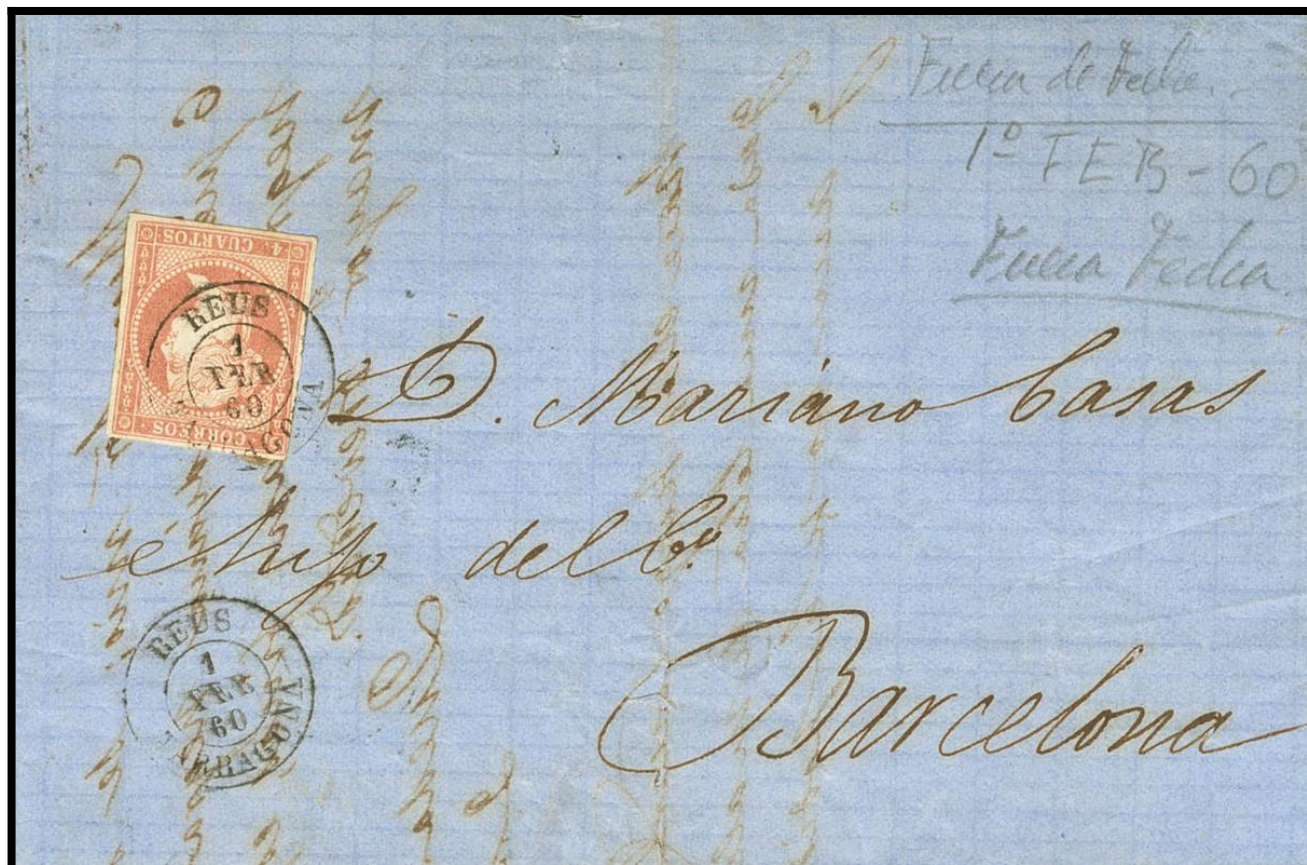 Fuera de Fecha.
1º FEB - 60
Fuera Fecha.
4. CUARTOS
CORREOS
REUS
1
FEB
60
TARRAGONA
D. Mariano Casas
é hijo del Cº.
Barcelona
REUS
1
FEB
60
TARRAGONA